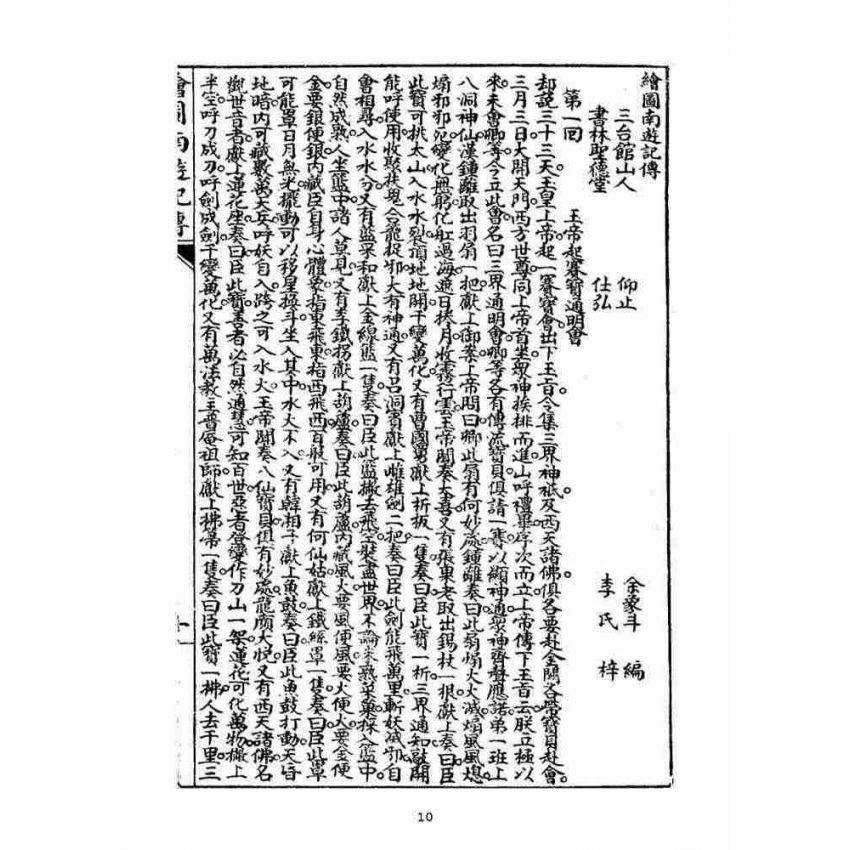 繪圖南遊記傳
三台館山人　仰止　余象斗　編
書林聖德堂　仕弘　李氏　梓
第一回　玉帝起賽寶通明會
却説三十三天玉皇上帝起一賽寶會出下玉旨令集三界神祇及西天諸佛俱各要赴金闕各帶寶貝赴會
三月三日大開天門西方世尊同上帝首坐眾神挨排而進山呼禮畢序次而立上帝傳下玉旨云朕立極以
來未會卿等今立此會名曰三界通明會卿等各有傳流寶貝俱請一賽以顯神通眾神齊聲應諾第一班上
八洞神仙漢鍾離取出羽扇一把獻上御案上帝問曰卿此扇有何妙處鍾離奏曰此扇煽火火滅煽風風熄
煽邪邪死變化無窮化舡過海遮日拷月收霧行雲玉帝聞奏大喜又有張果老取出錫杖一根獻上奏曰臣
此寶可挑太山入水水裂頂地地開千變萬化又有曹國舅獻上析板一隻奏曰臣此寶一析三界通知敲開
能呼使用收聚扶鬼合籠捉邪大有神通又有呂洞賓獻上雌雄劍二把奏曰臣此劍能飛萬里斬妖滅邪自
會相尋入水水分又有藍采和獻上金線籃一隻奏曰臣此籃撇去飛空裝盡世界不論未熟菜菓採入籃中
自然成熟人坐籃中諸人莫見又有李鐵拐獻上葫蘆奏曰臣此葫蘆内藏風火要風便風要火便火要金便
金要銀便銀内藏臣自身心體象指東飛東指西飛西百般可用又有何仙姑獻上鐵絲罩一隻奏曰臣此罩
可能罩日月無光擺動可以移星換斗坐入其中水火不入又有韓相子獻上魚鼓奏曰臣此魚鼓打動天昏
地暗内可藏數萬天兵呼妖自入跨之可入水火玉帝聞奏八仙寶貝俱有妙處龍顏大悅又有西天諸佛名
觀世音者獻上蓮花座奏曰臣此寶善者必自然通慧可知百世惡者登變作刀山一架蓮花可化萬物撇上
半空呼刀成刀呼劍成劍千變萬化又有萬法教主普庵祖師獻上拂箒一隻奏曰臣此寶一拂人去千里三
繪圖南遊記傳
10